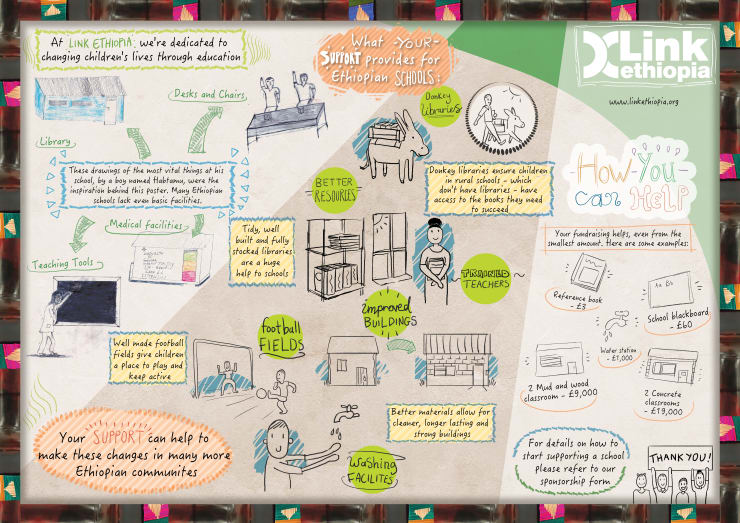 At LINK ETHIOPIA: we're dedicated to
changing children's lives through education
Desks and Chairs
Library
These drawings of the most vital things at his
school, by a boy named Habtamu, were the
inspiration behind this poster. Many Ethiopian
schools lack even basic facilities.
Medical facilities
Teaching Tools
What -YOUR-
SUPPORT provides for
Ethiopian SCHOOLS:
Donkey
libraries
Donkey libraries ensure children
in rural schools – which
don't have libraries – have
access to the books they need
to succeed
BETTER
RESOURCES
Tidy, well
built and fully
stocked libraries
are a huge
help to schools
TRAINED
TEACHERS
Improved
BUILDINGS
football
FIELDS
Well made football
fields give children
a place to play and
keep active
Better materials allow for
cleaner, longer lasting and
strong buildings
Washing
FACILITES
Your SUPPORT can help to
make these changes in many more
Ethiopian communites
Link
ethiopia
www.linkethiopia.org
How You
can HELP
Your fundraising helps, even from the
smallest amount. Here are some examples:
Reference book
- £3
Aa Bb
School blackboard
- £60
Water station
- £1,000
2 Mud and wood
classroom - £9,000
2 Concrete
classrooms
- £19,000
For details on how to
start supporting a school
please refer to our
sponsorship form
THANK YOU!